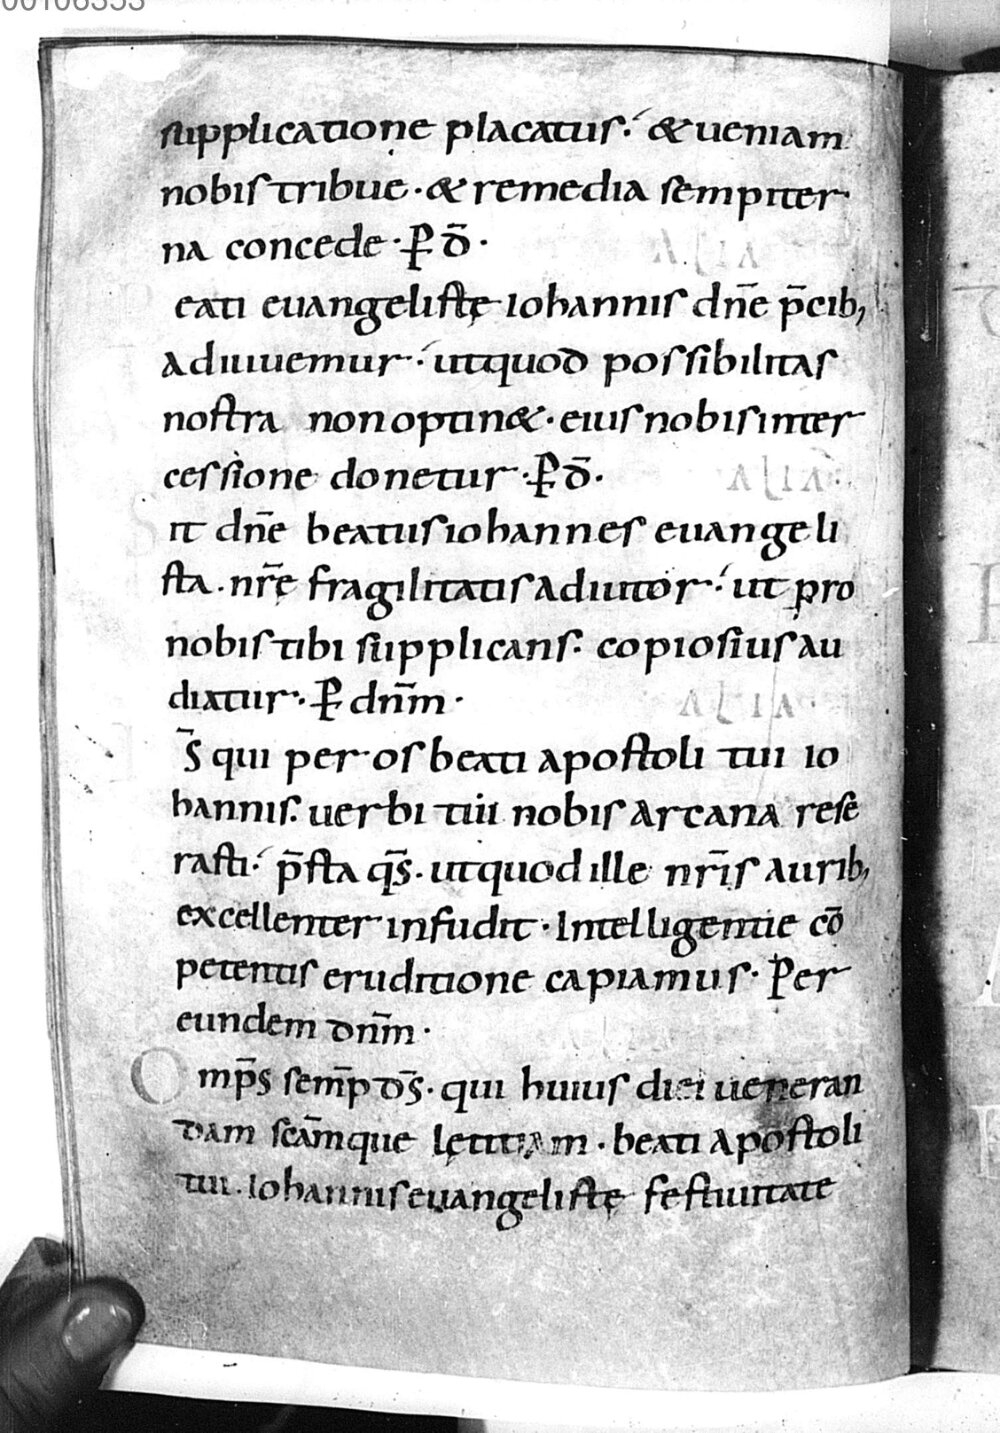 00106353
supplicatione placatus·́ & ueniam
nobis tribue · & remedia sempiter
na concede · P̄ d̄ ·
ALIA
eati euangelistę iohannis dn̄e p̄cib;
adiuuemur ·́ ut quod possibilitas
nostra non optin& · eius nobis inter
cessione donetur · P̄ d̄ ·
ALIA
it dn̄e beatus iohannes euangeli
sta · nr̄ę fragilitatis adiutor ·́ ut pro
nobis tibi supplicans · copiosius au
diatur · P̄ dn̄m ·
ALIA
s̄ qui per os beati apostoli tui io
hannis · uerbi tui nobis arcana rese
rasti ·́ p̄sta qs̄ · ut quod ille nr̄is aurib;
excellenter infudit · Intelligentie cō
petentis eruditione capiamus · Per
eundem dn̄m ·
O mp̄s sem̄p ds̄ · qui huius diei ueneran
dam sc̄amque lętitiam · beati apostoli
tui · Iohannis euangelistę festiuitate